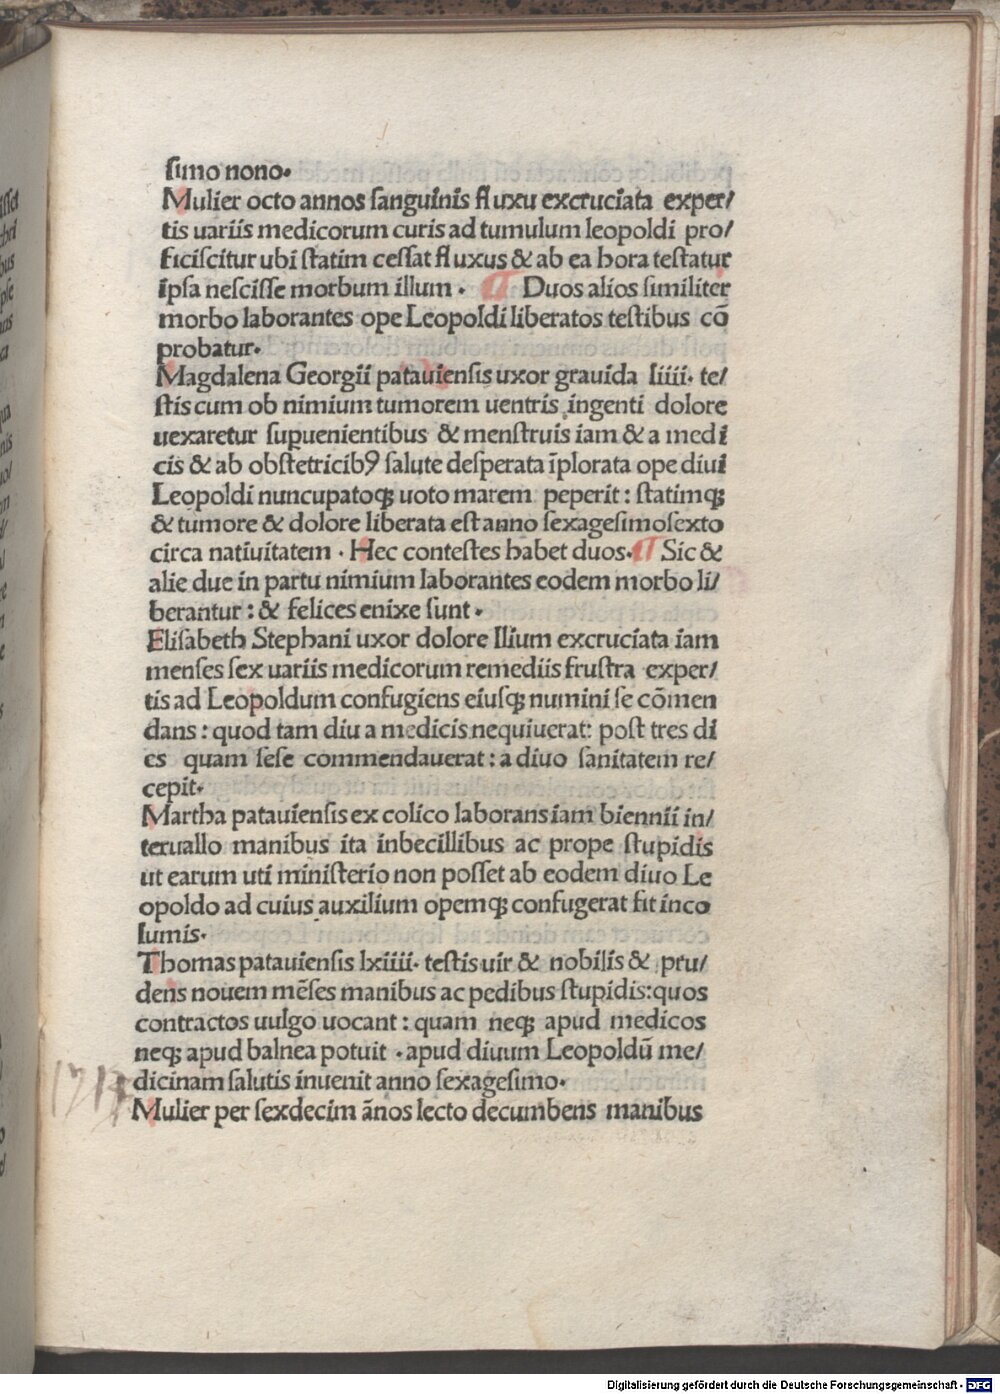 ſimo nono.
Mulier octo annos ſanguinis fluxu excruciata exper/
tis uariis medicorum curis ad tumulum leopoldi pro/
ficiſcitur ubi ſtatim ceſſat fluxus & ab ea hora teſtatur
ipſa neſciſſe morbum illum . ¶ Duos alios ſimiliter
morbo laborantes ope Leopoldi liberatos teſtibus cō
probatur.
Magdalena Georgii patauienſis uxor grauida liiii. te/
ſtis cum ob nimium tumorem uentris ingenti dolore
uexaretur ſupuenientibus & menſtruis iam & a medi
cis & ab obſtetricibꝰ ſalute deſperata īplorata ope diui
Leopoldi nuncupatoqꝫ uoto marem peperit : ſtatimqꝫ
& tumore & dolore liberata eſt anno ſexageſimoſexto
circa natiuitatem . Hec conteſtes habet duos. ¶ Sic &
alie due in partu nimium laborantes eodem morbo li/
berantur : & felices enixe ſunt .
Eliſabeth Stephani uxor dolore Ilium excruciata iam
menſes ſex uariis medicorum remediis fruſtra exper/
tis ad Leopoldum confugiens eiuſqꝫ numini ſe cōmen
dans : quod tam diu a medicis nequiuerat: poſt tres di
es quam ſeſe commendauerat : a diuo ſanitatem re/
cepit.
Martha patauienſis ex colico laborans iam biennii in/
teruallo manibus ita inbecillibus ac prope ſtupidis
ut earum uti miniſterio non poſſet ab eodem diuo Le
opoldo ad cuius auxilium opemqꝫ confugerat fit inco
lumis.
Thomas patauienſis lxiiii. teſtis uir & nobilis & pru/
dens nouem mēſes manibus ac pedibus ſtupidis:quos
contractos uulgo uocant : quam neqꝫ apud medicos
neqꝫ apud balnea potuit . apud diuum Leopoldū me/
dicinam ſalutis inuenit anno ſexageſimo.
Mulier per ſexdecim ānos lecto decumbens manibus
Digitalisierung gefördert durch die Deutsche Forschungsgemeinschaft - DFG